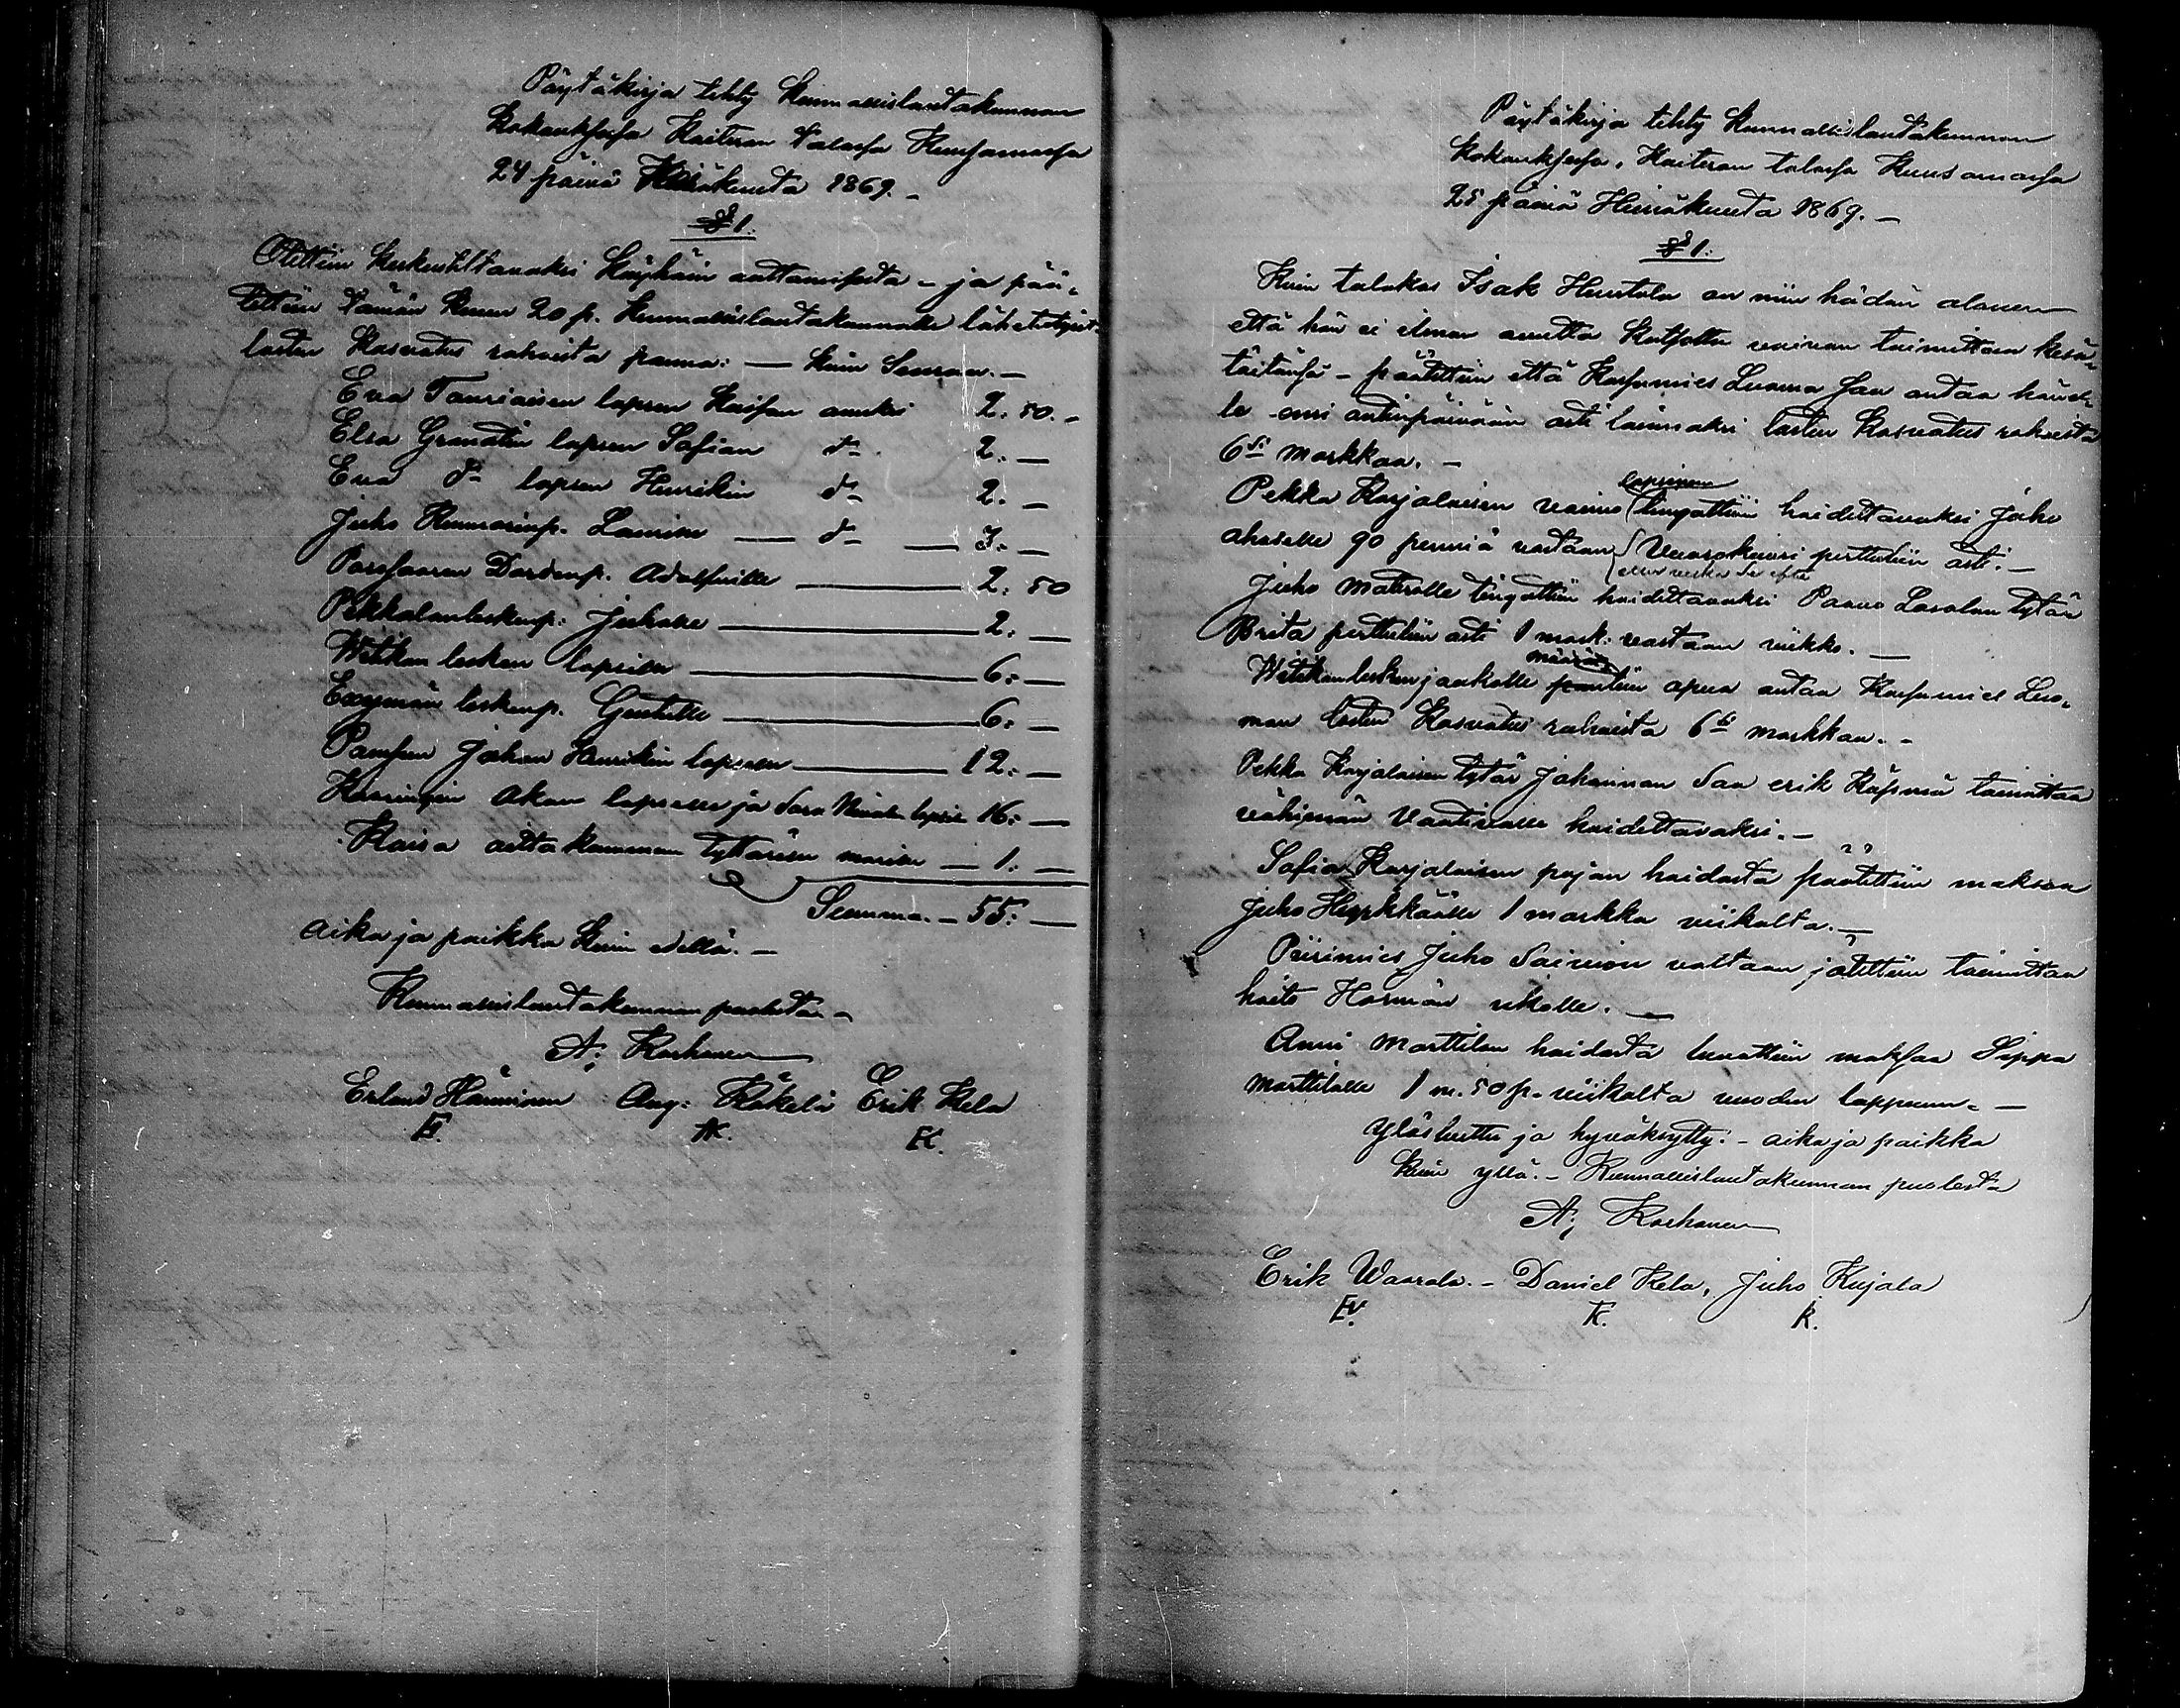 Päytäkirja tehty Kunnallislautakunnan
Kokouksesa Kaiteran Talosa Kuusamosa
24 päivä Kesäkuuta 1869. -
§ 1.
Otettiin keskusteltavaksi köyhäin auttamisesta - ja pää-
tettiin Tämän kuun 20 p. Kunnallislautakunnalle lähetetyist
lasten Kasvatus rahoista panna: — kuin Seuraa. -
Eva Tauriaisen lapsen Kaisan avuksi 2. 50. -
Elsa Granatin lapsen Sofian d:o 2. —
Eva d:o lapsen Henrikin d:o 2. —
Juho Kunnarinp. — d:o — 3. —
Adolfiville — 2. 50
Pekkalanleskenp: Juholle — 2. —
Wetikon lesken lapsille — 6: —
leskenp. Gustulle — 6: —
Johan Henrikin lapsen — 12: —
Akan lapselle ja Sara lapsil. 16: —
Kaisa aittakumman tyttärelle — 1: —
Summa. — 55: —
Aika ja paikka kuin edellä. —
Kunnallislautakunnan puolesta -
A: Karhanen
Erland Hänninen Aug: Käkelä Erik Kela
E. AK. EK.
Päytäkirja tehty Kunnallislautakunnan
kokouksesa, Kaiteran talosa Kuusamosa
25 päivä Heinäkuuta 1869. -
§ 1.
Kuin talokas Isak Huntala on niin hädän alanen
että hän ei ilman avutta kulsottu voinun toimittaa kesä-
töitänsä - päätettiin että Kassamies Luoma saa antaa hänel-
le ensi antinpäivään asti lainaksi lasten Kasvatus rahoista
6:si markkaa. -
lapsinen
Pekka Karjalaisen vaimo tingattiin haidettavaksi Juho
ahoselle 90 penniä vastaan Vuorokausi perttuliin asti. -
Juho Matirolle tingattiin haidettavaksi Paavo Lasalan tytär
Brita perttuliin asti 1 mark: vastaan viikko. —
määrät
Wetikonlesken jaakolle päätettiin apua antaa Kassamies Luo-
man lasten Kasvatus rahoista 6:si markkaa. -
Pekka Karjalaisen tytär Johannan Saa erik Käsmä toimittaa
vähimän Vaativalle haidettavaksi. -
Sofia Karjalaisen pojan haidosta päätettiin maksaa
Juho Hyrkkäälle 1 markka viikolta. —
Piirimies Juho Saivion valtaan jätettiin toimittaa
haito Harmän ukolle. —
Anni Marttilan haidosta luvattiin maksaa Sippa
Marttilalle 1 m. 50 p. viikolta vuoden loppuun. —
Yläsluettu ja hyväksytty: - aika ja paikka
kuin yllä. - Kunnallislautakunnan puolesta
A: Karhanen
Erik Waarala. - Daniel Kela, Juho Kujala
EV. K. K.